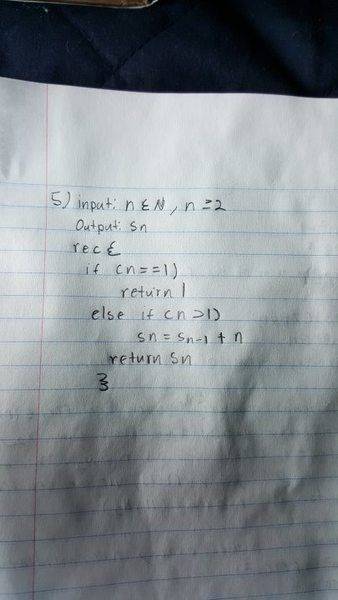 5) input: n ∈ ℕ, n ≥ 2
Output: Sn
rec {
if (n==1)
return 1
else if (n>1)
Sn = Sn-1 + n
return Sn
}